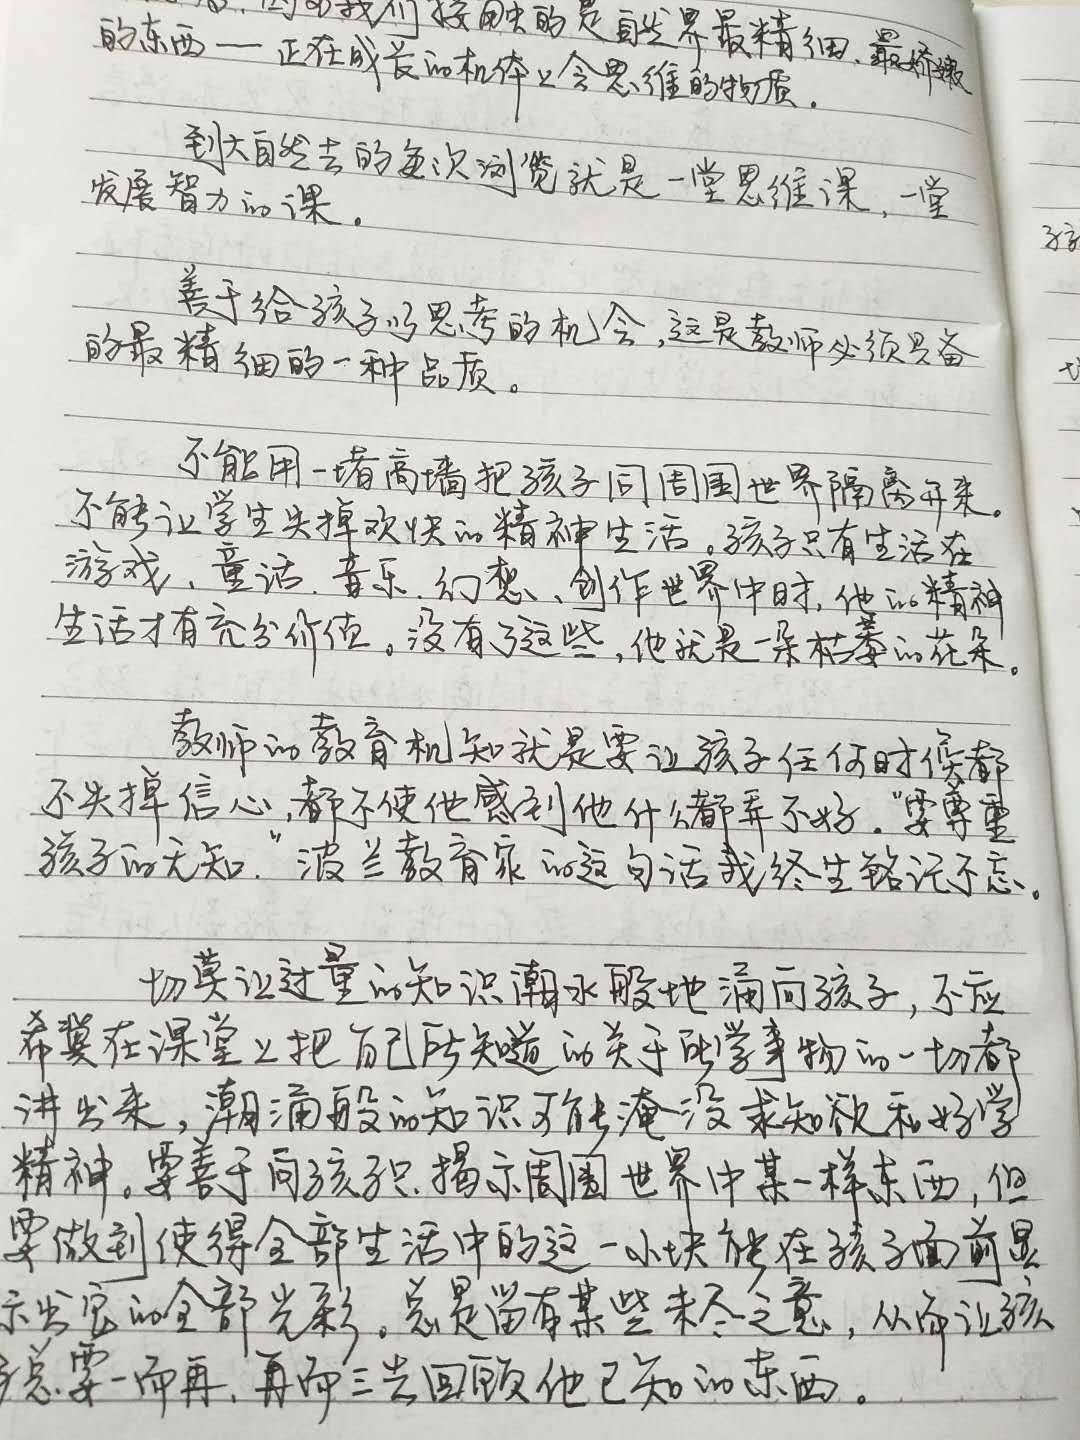 因为我们接触的是自然界最精细、最娇嫩
的东西——正在成长的机体上会思维的物质。
到大自然去的每次浏览就是一堂思维课，一堂
发展智力的课。
善于给孩子以思考的机会，这是教师必须具备
的最精细的一种品质。
不能用一堵高墙把孩子同周围世界隔离开来。
不能让学生失掉欢快的精神生活。孩子只有生活在
游戏、童话、音乐、幻想、创作世界中时，他的精神
生活才有充分价值。没有了这些，他就是一朵枯萎的花朵。
教师的教育机知就是要让孩子任何时候都
不失掉信心，都不使他感到他什么都弄不好。“要尊重
孩子的无知.”波兰教育家的这句话我终生铭记不忘。
切莫让过量的知识潮水般地涌向孩子，不应
希冀在课堂上把自己所知道的关于所学事物的一切都
讲出来，潮涌般的知识可能淹没求知欲和好学
精神。要善于向孩子只揭示周围世界中某一样东西，但
要做到使得全部生活中的这一小块能在孩子面前显
示出它的全部光彩。总是留有某些未尽之意，从而让孩
子总要一而再，再而三去回顾他已知的东西。
孩
切